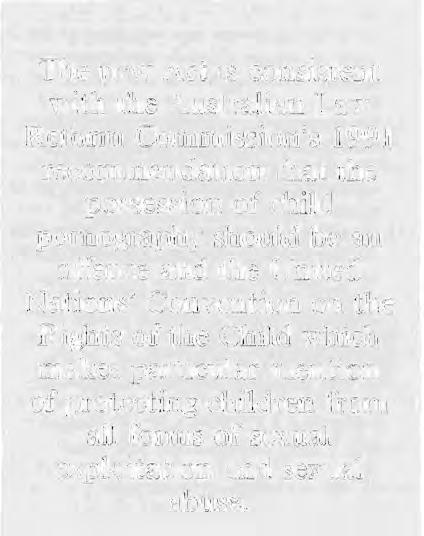 The new Act is consistent
with the Australian Law
Reform Commission's 1991
recommendation that the
possession of child
pornography should be an
offence and the United
Nations' Convention on the
Rights of the Child which
makes particular mention
of protecting children from
all forms of sexual
exploitation and sexual
abuse.